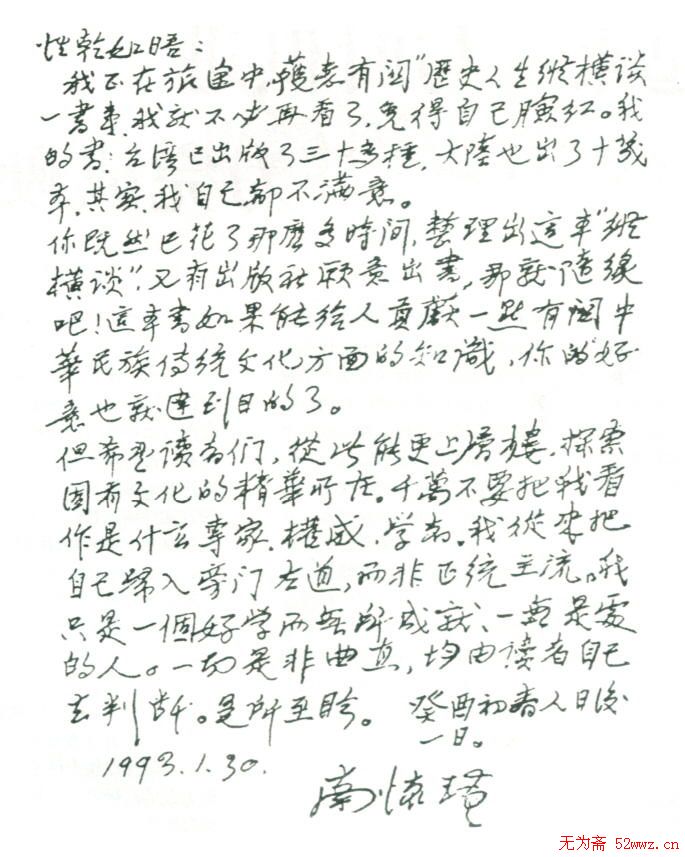 性乾如晤：
我正在旅途中，獲悉有関"歷史人生縱橫谈
一書事，我就不必再看了，免得自己臉红。我
的書，台湾已出版了三十多種，大陸也出了十幾
本，其实，我自己都不满意。
你既然已花了那麽多時间，整理出這本"縱
橫谈"，又有出版社願意出書，那就隨緣
吧！這本書如果能给人貢献一點有関中
華民族传統文化方面的知識，你的"好
意也就達到目的了。
但希望读者们，從此能更上層樓，探索
固有文化的精華所在。千萬不要把我看
作是什么專家，權威，学者。我從來把
自己歸入旁门左道，而非正統主流。我
只是一個好学而無所成就、一無是處
的人。一切是非曲直，均由读者自己
去判斷。是所至盼。 癸酉初春人日後
一日。
1993.1.30.
南懷瑾
无为斋 52wwz.cn